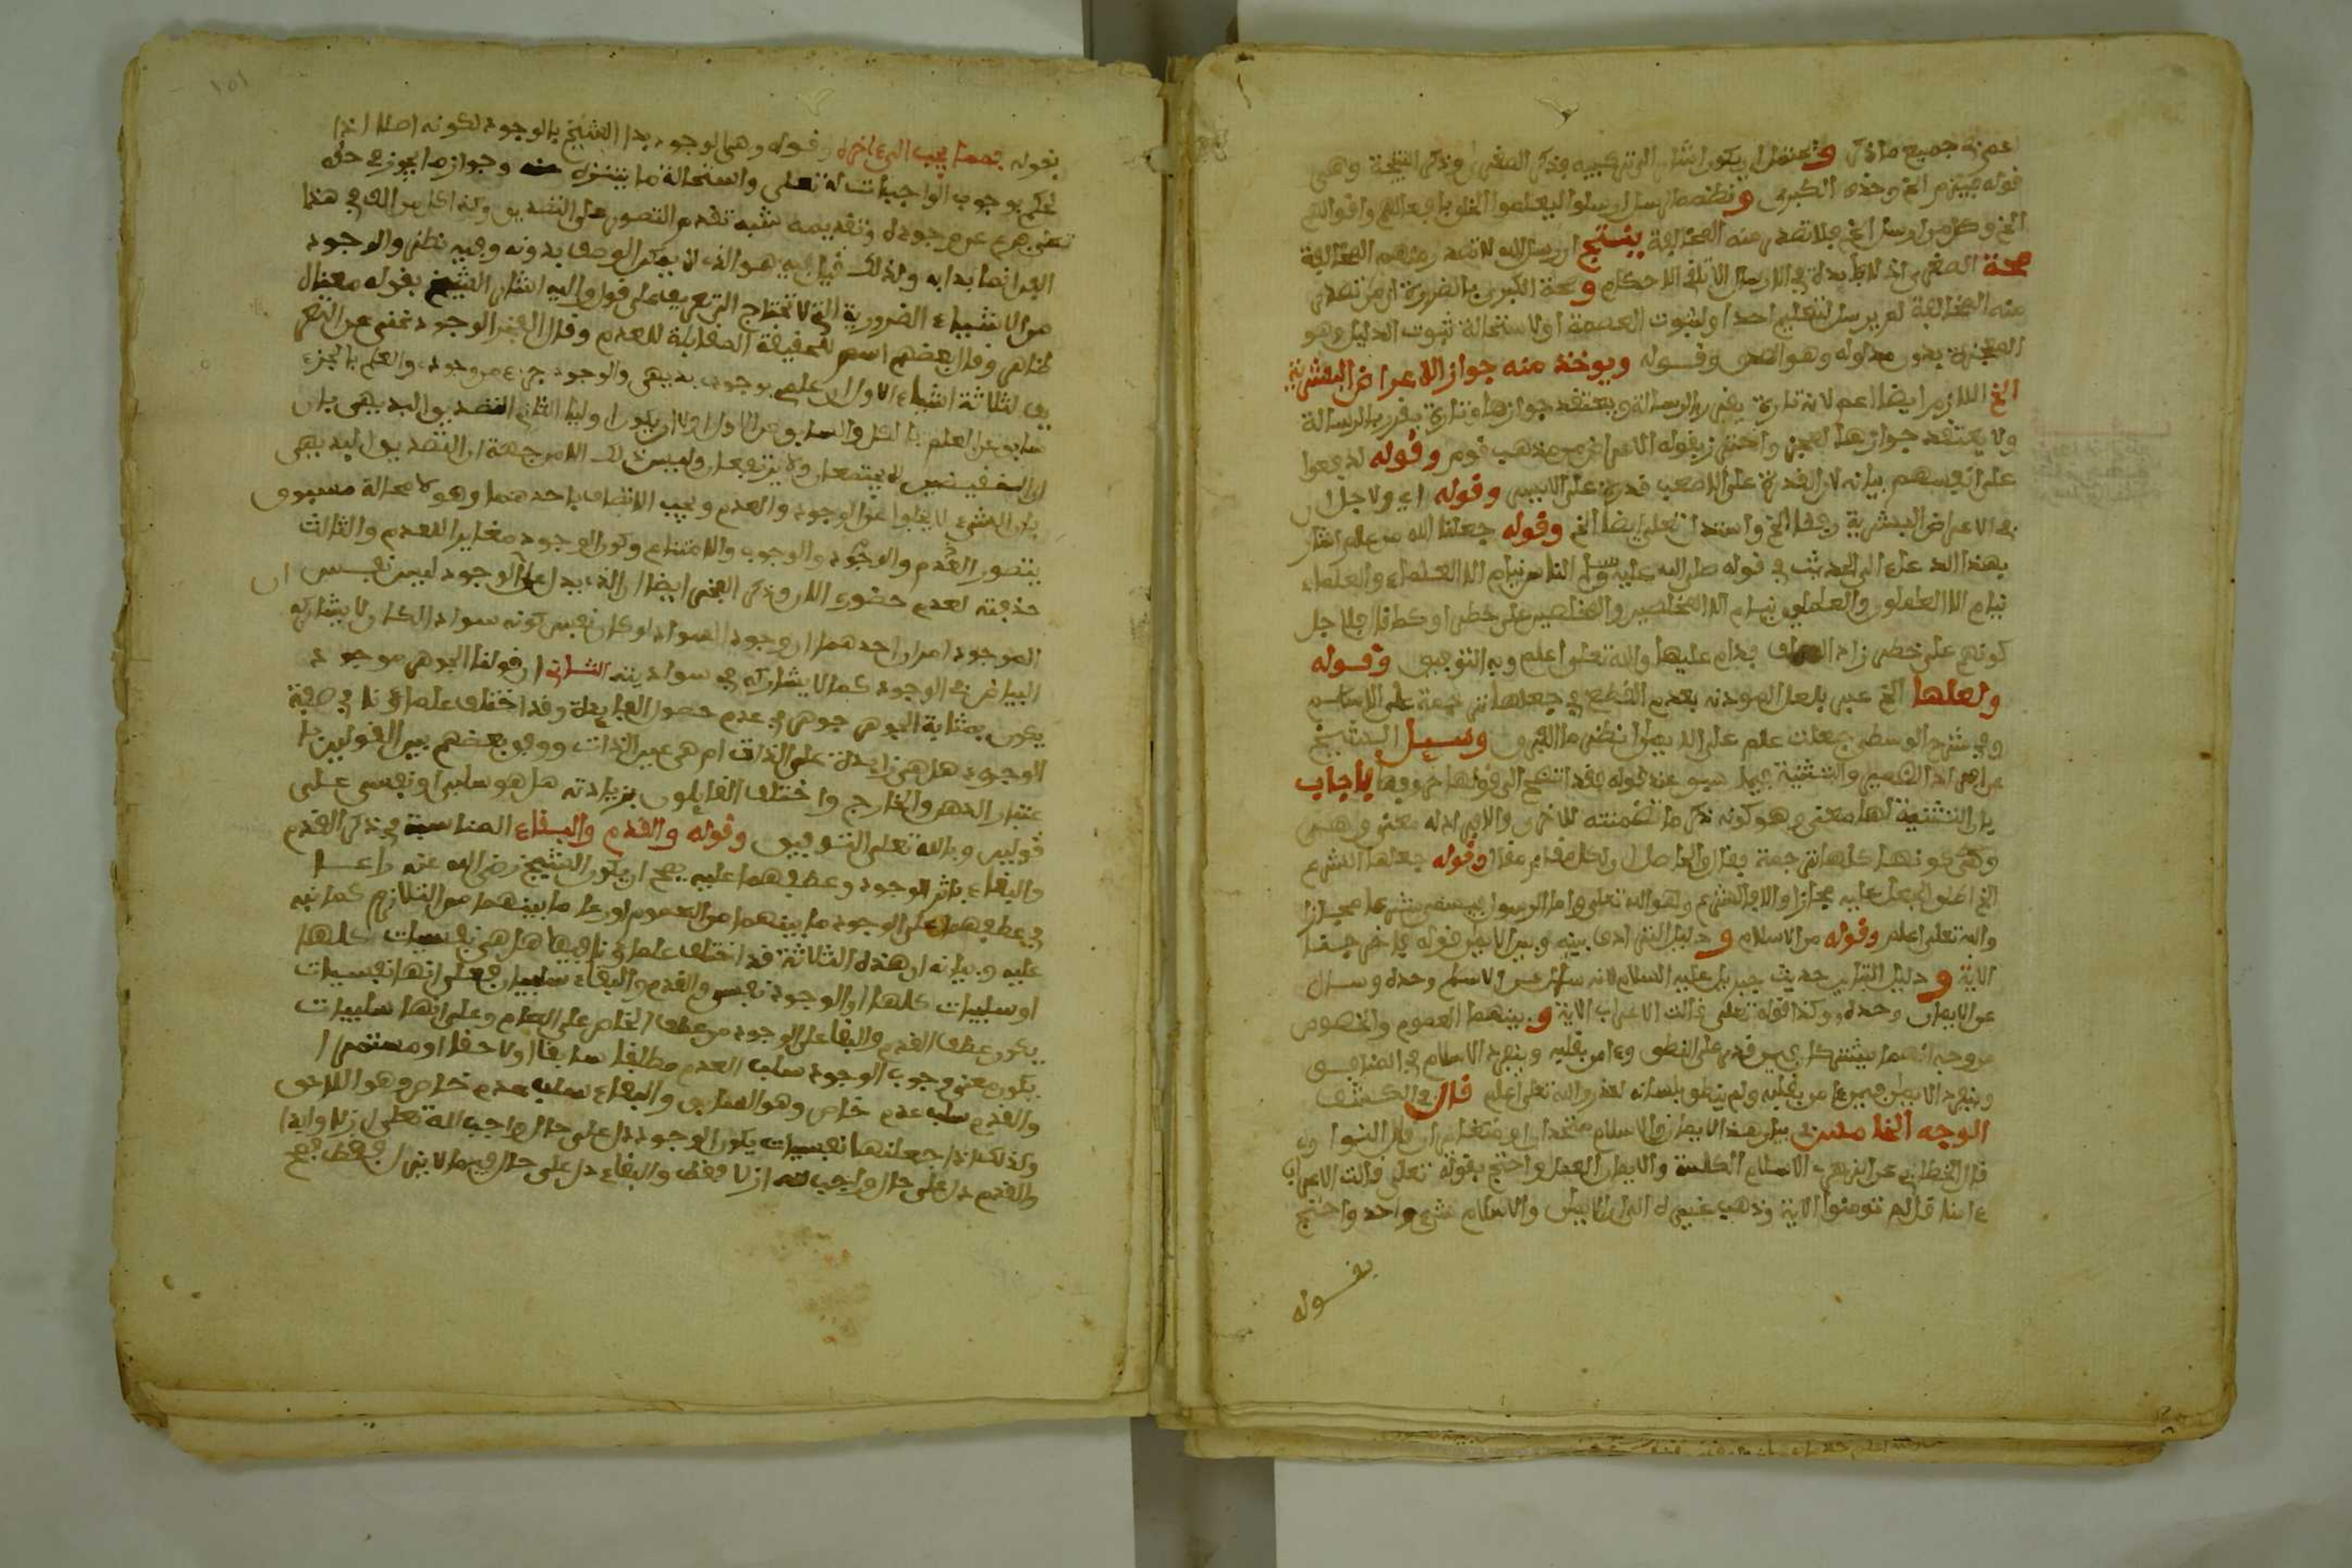 اعم من جميع ما ذكر ويحتمل ان يكون اشار الى تركيبه بذكر الصغرى وذكر النتيجة وهي
قوله فيلزم الخ وحذف الكبرى ونظمه الرسل ارسلوا ليعلموا الخلق بافعالهم واقوالهم
الخ وكل من ارسل الخ فلا تصدر منه المخالفة ينتج ان رسل الله لا تصدر منهم المخالفة
صحة الصغرى اذ لا فايدة في الارسال الا تبليغ الاحكام وصحة الكبرى بالضرورة اذ من تصدر
منه المخالفة لم يرسل لتعليم احد او لثبوت العصمة او لاستحالة ثبوت الدليل وهو
المعجزة بدون مدلوله وهو الصدق وقوله ويوخذ منه جواز الاعراض البشرية
الخ اللازم ايضا اعم لانه تارة يقر بالرسالة ويعتقد جوازها وتارة يقر بالرسالة
ولا يعتقد جوازها لعجز واحترز بقوله الاعراض من مذهب قوم وقوله لدفعوا
على انفسهم بيانه لان القدرة على الاصعب قدرة على الايسر وقوله اي ولاجل ان
في الاعراض البشرية رفقا الخ واستدل تعلى ايضا الخ وقوله جعلنا الله من علم اشار
بهذا الدعاء الى الحديث في قوله صلى الله عليه وسلم الناس نيام الا العلماء والعلماء
نيام الا العاملون والعاملون نيام الا المخلصين والمخلصين على خطر او كما قال فلاجل
كونهم على خطر زاد فدام عليها والله تعلى اعلم وبه التوفيق وقوله
ولعلها الخ عبر بلعل الموذنة بعدم القطع في جعلها ترجمة على الاسلام
وفي شرح الوسطى جعلت علم على الايمان انظر ما الفرق وسيل الشيخ
عن افراد الضمير والتثنية فيما سبق عند قوله فقد اتضح الى قولها حروفها فاجاب
بان التثنية لها معنى وهو كونه ذكر ما تضمنته للاخرى والافراد له معنى وهي
وهي كونها كلها ترجمة فقال والحاصل ان لكل مقام مقال وقوله جعلها الشرع
الخ اطلق الجعل عليه مجازا والا فالشرع وهو الله تعلى واما الرسول فيسمى شرعا مجازا
والله تعلى اعلم وقوله من الاسلام ودليل الترادف بينه وبين الايمان قوله فاخرجنا
الاية ودليل التباين حديث جبريل عليه السلام لانه سال عن الاسلام وحده وسال
عن الايمان وحده وكذا قوله تعلى قالت الاعراب الاية وبينهما العموم والخصوص
من وجه انهما يشتركان في من قدر على النطق وءامن بقلبه وينفرد الاسلام في المنافق
وينفرد الايمان فيمن ءامن بقلبه ولم ينطق بلسانه لعذر والله تعلى اعلم قال في الكشف
الوجه الخامس في بيان هذا الايمان والاسلام متحدان او مختلفان قال النواوي
قال الخطابي عن الزهري الاسلام الكلمة والايمان العمل واحتج بقوله تعلى قالت الاعراب
ءامنا قل لم تومنوا الاية وذهب غيره الى ان الايمان والاسلام شيء واحد واحتج
بقوله
بقوله فمما يجب الى ءاخره وقوله وهي الوجود بدا الشيخ بالوجود لكونه اصلا اذا
لحكم بوجوب الواجبات له تعلى واستحالة ما يتنزه عنه وجواز ما يجوز في حقه
تعلى فرع عن وجوده وتقديمه شبه تقدم التصور على التصديق وكذا كل من الف في هذا
الفن انما بدا به ولذلك قيل فيه هو الذي لا يمكن الوصف بدونه وفيه نظر والوجود
من الاشياء الضرورية التي لا تحتاج الى تعريف على قول واليه اشار الشيخ بقوله معناه
ظاهر وقال بعضهم اسم للحقيقة المقابلة للعدم وقال الفخر الوجود غني عن التعر
يف لثلاثة اشياء الاول ان علمي بوجودي بديهي والوجود جزء من وجودي والعلم بالجزء
سابق عن العلم بالكل والسابق عن الاول اولى ان يكون اوليا الثاني التصديق البديهي بان
النقيضين لا يجتمعان ولا يرتفعان وليس ذلك الا من جهة ان التصديق البديهي
بان الشيء لا يخلوا عن الوجود والعدم ويجب الاتصاف باحدهما وهو لا محالة مسبوق
بتصور العدم والوجود والوجوب والامتناع وكون الوجود مغايرا للعدم والثالث
حذفته لعدم حضوره الان وذكر الفخر ايضا ان الذي يدل على ان الوجود ليس نفس
الموجود امران احدهما ان وجود السواد لو كان نفس كونه سواد لكان لا يشاركه
البياض في الوجود كما لا يشاركه في سواديته الثاني ان قولنا الجوهر موجود
يكون بمثابة الجوهر جوهر في عدم حصول الفايدة وقد اختلف علماؤنا في صفة
الوجود هل هي زايدة على الذات ام هي عين الذات ووفق بعضهم بين القولين با
عتبار الذهن والخارج واختلف القايلون بزيادته هل هو سلبي او نفسي على
قولين وبالله تعلى التوفيق وقوله والقدم والبقاء المناسبة في ذكر القدم
والبقاء باثر الوجود وعطفهما عليه يصح ان يكون الشيخ رضي الله عنه راعا
في عطفهما على الوجود ما بينهما من العموم او راعا ما بينهما من التلازم كما نبه
عليه وبيانه ان هذه الثلاثة قد اختلف علماؤنا فيها هل هي نفسيات كلها
او سلبيات كلها او الوجود نفسي والقدم والبقاء سلبيان فعلى انها نفسيات
يكون عطف القدم والبقا على الوجود من عطف الخاص على العام وعلى انها سلبيات
يكون معنى وجوب الوجود سلب العدم مطلقا سابقا او لاحقا او مستمرا
والقدم سلب عدم خاص وهو السابق والبقاء سلب عدم خاص وهو اللاحق
وكذلك اذا جعلنها نفسيات يكون الوجود دل على حال واجب الله تعلى ازلا وابدا
والقدم دل على حال واجب لله ازلا فقط والبقاء دل على حال فيما لا يزال فقط فصح